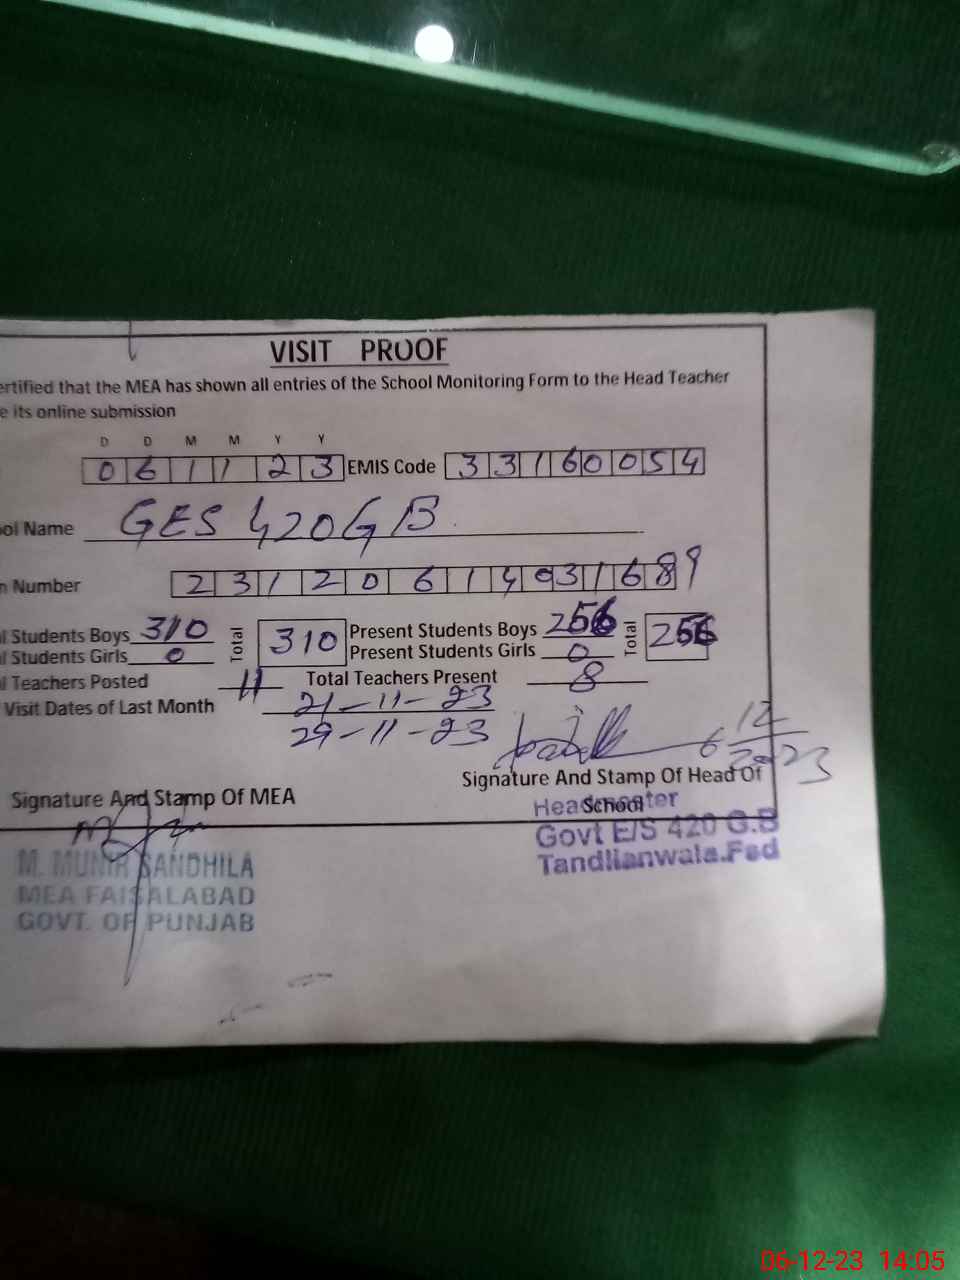 VISIT PROOF
ertified that the MEA has shown all entries of the School Monitoring Form to the Head Teacher
e its online submission
D D M M Y Y
0 6 1 1 2 3 EMIS Code 3 3 1 6 0 0 5 4
ol Name GES 420 GB
n Number 2 3 1 2 0 6 1 4 0 3 1 6 8 9
l Students Boys 310 Total 310 Present Students Boys 256 Total 256
l Students Girls 0 Present Students Girls 0
l Teachers Posted 11 Total Teachers Present 8
Visit Dates of Last Month 21-11-23
29-11-23
6 12 2023
Signature And Stamp Of MEA Signature And Stamp Of Head Of
School
Headmaster
Govt E/S 420 G.B
Tandlianwala.Fsd
M. MUNIR SANDHILA
MEA FAISALABAD
GOVT. OF PUNJAB
06-12-23 14:05